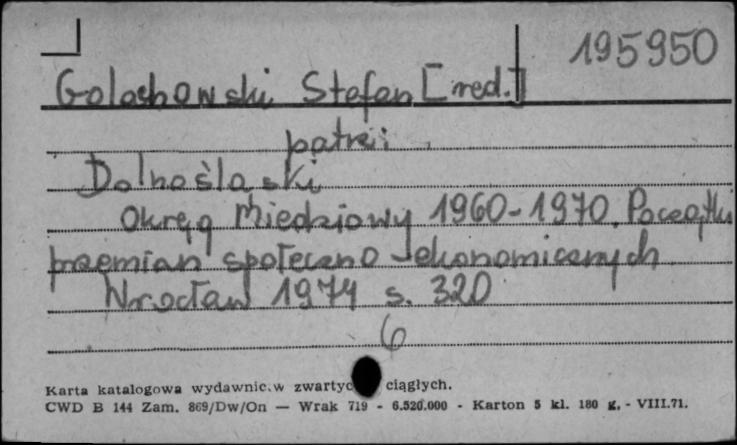 195950
Golachowski Stefan [red.]
patrz:
Dolnośląski
Okręg Miedziowy 1960-1970. Początki
przemian społeczno-ekonomicznych
Wrocław 1974 s. 320
6
Karta katalogowa wydawnic.w zwartyc ciągłych.
CWD B 144 Zam. 869/Dw/On — Wrak 719 - 6.520.000 - Karton 5 kl. 180 g. - VIII.71.